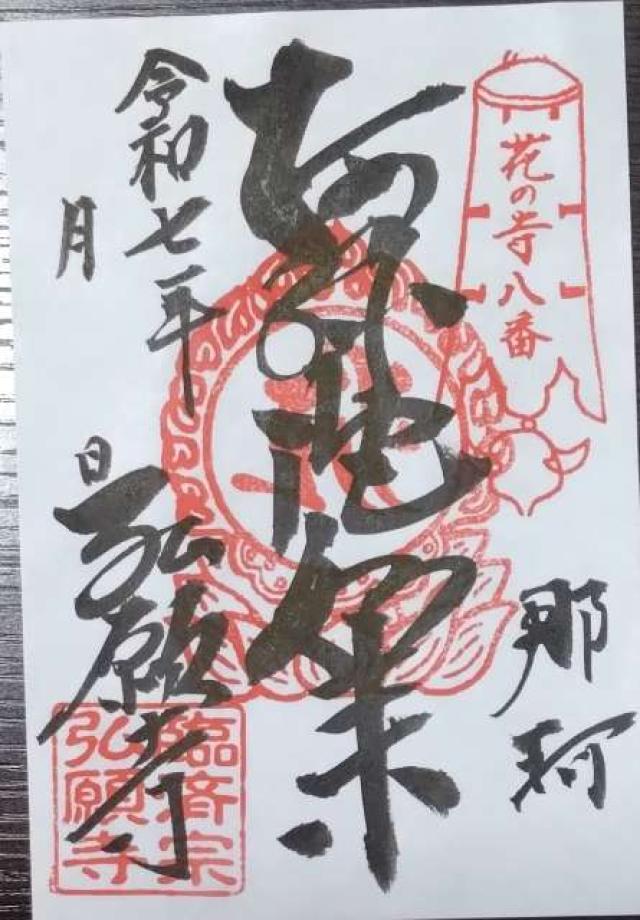 花の寺八番
那珂
阿弥陀如来
令和七年
月 日
弘願寺
臨済宗
弘願寺